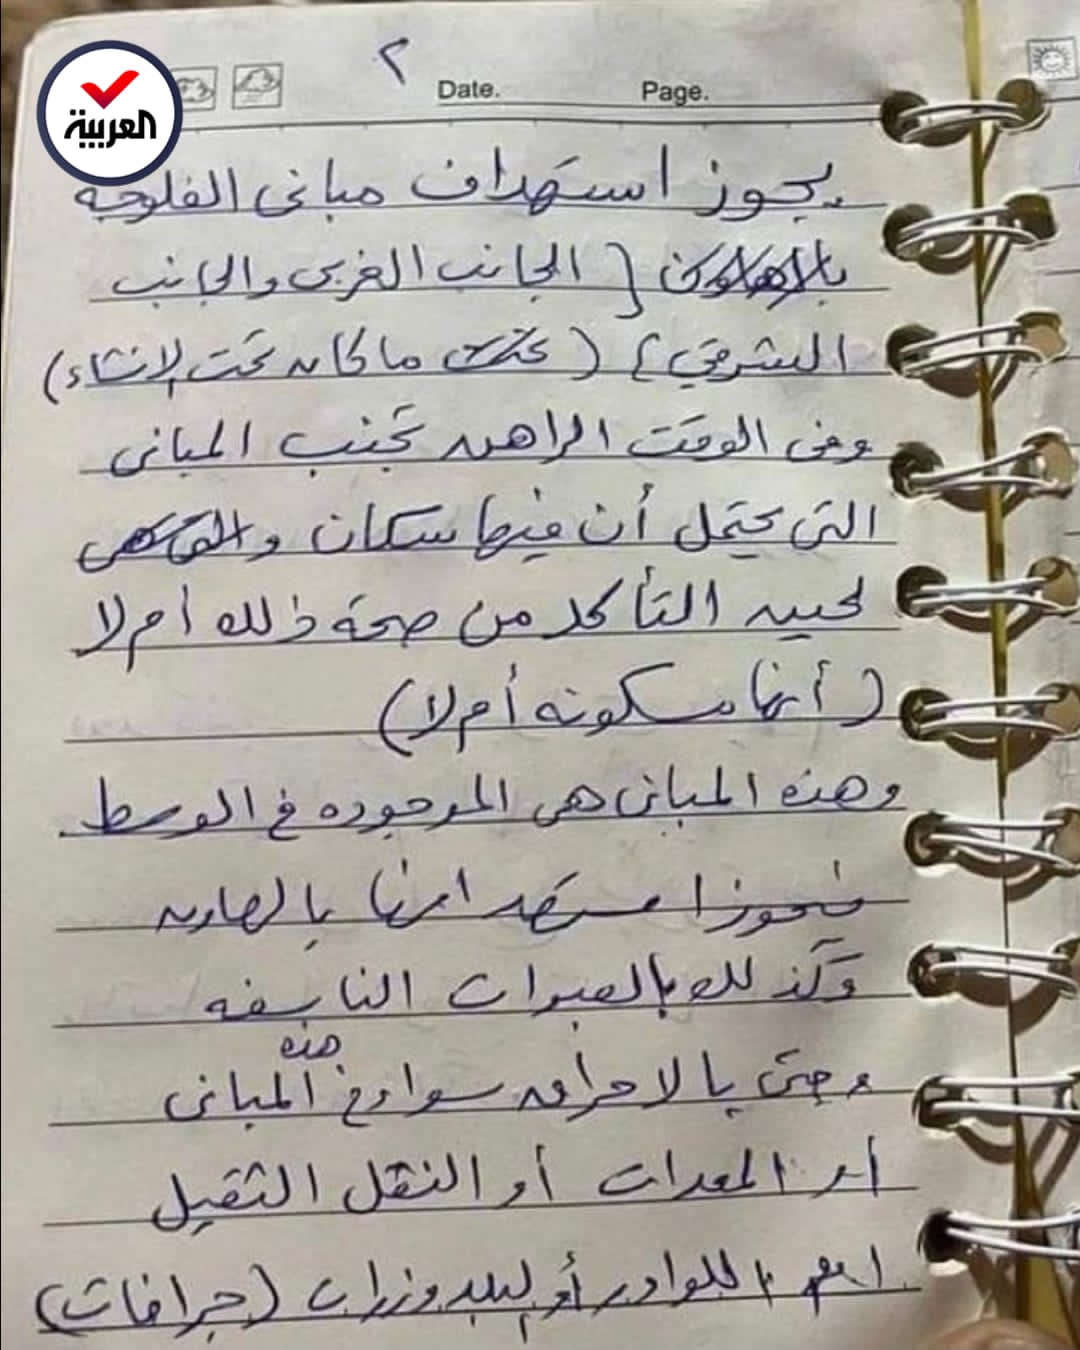 العربية
٢
Date. Page.
يجوز استهداف مباني الفلوجه
بالهاون { الجانب الغربى والجانب
الشرقي } ( ماكان تحت الانشاء )
وفى الوقت الراهن تجنب المبانى
التى يحتمل أن فيها سكان
لحين التأكد من صحة ذلك أم لا
( أنها مسكونه أم لا )
وهذه المبانى هى الموجوده في الوسط
فيجوز استهدافها بالهاون
وكذلك بالعبوات الناسفه
هذه
وحتى بالاحراق سواء في المبانى
أو المعدات أو النقل الثقيل
اللوادر أو البلدوزرات ( جرافات )